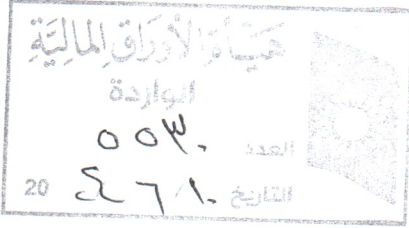 هَيـأةُ الأَورَاقِ المَالِيَّةِ
الواردة
العدد ٥٥٣٠
التاريخ ١٠ / ٦ / ٤ 20